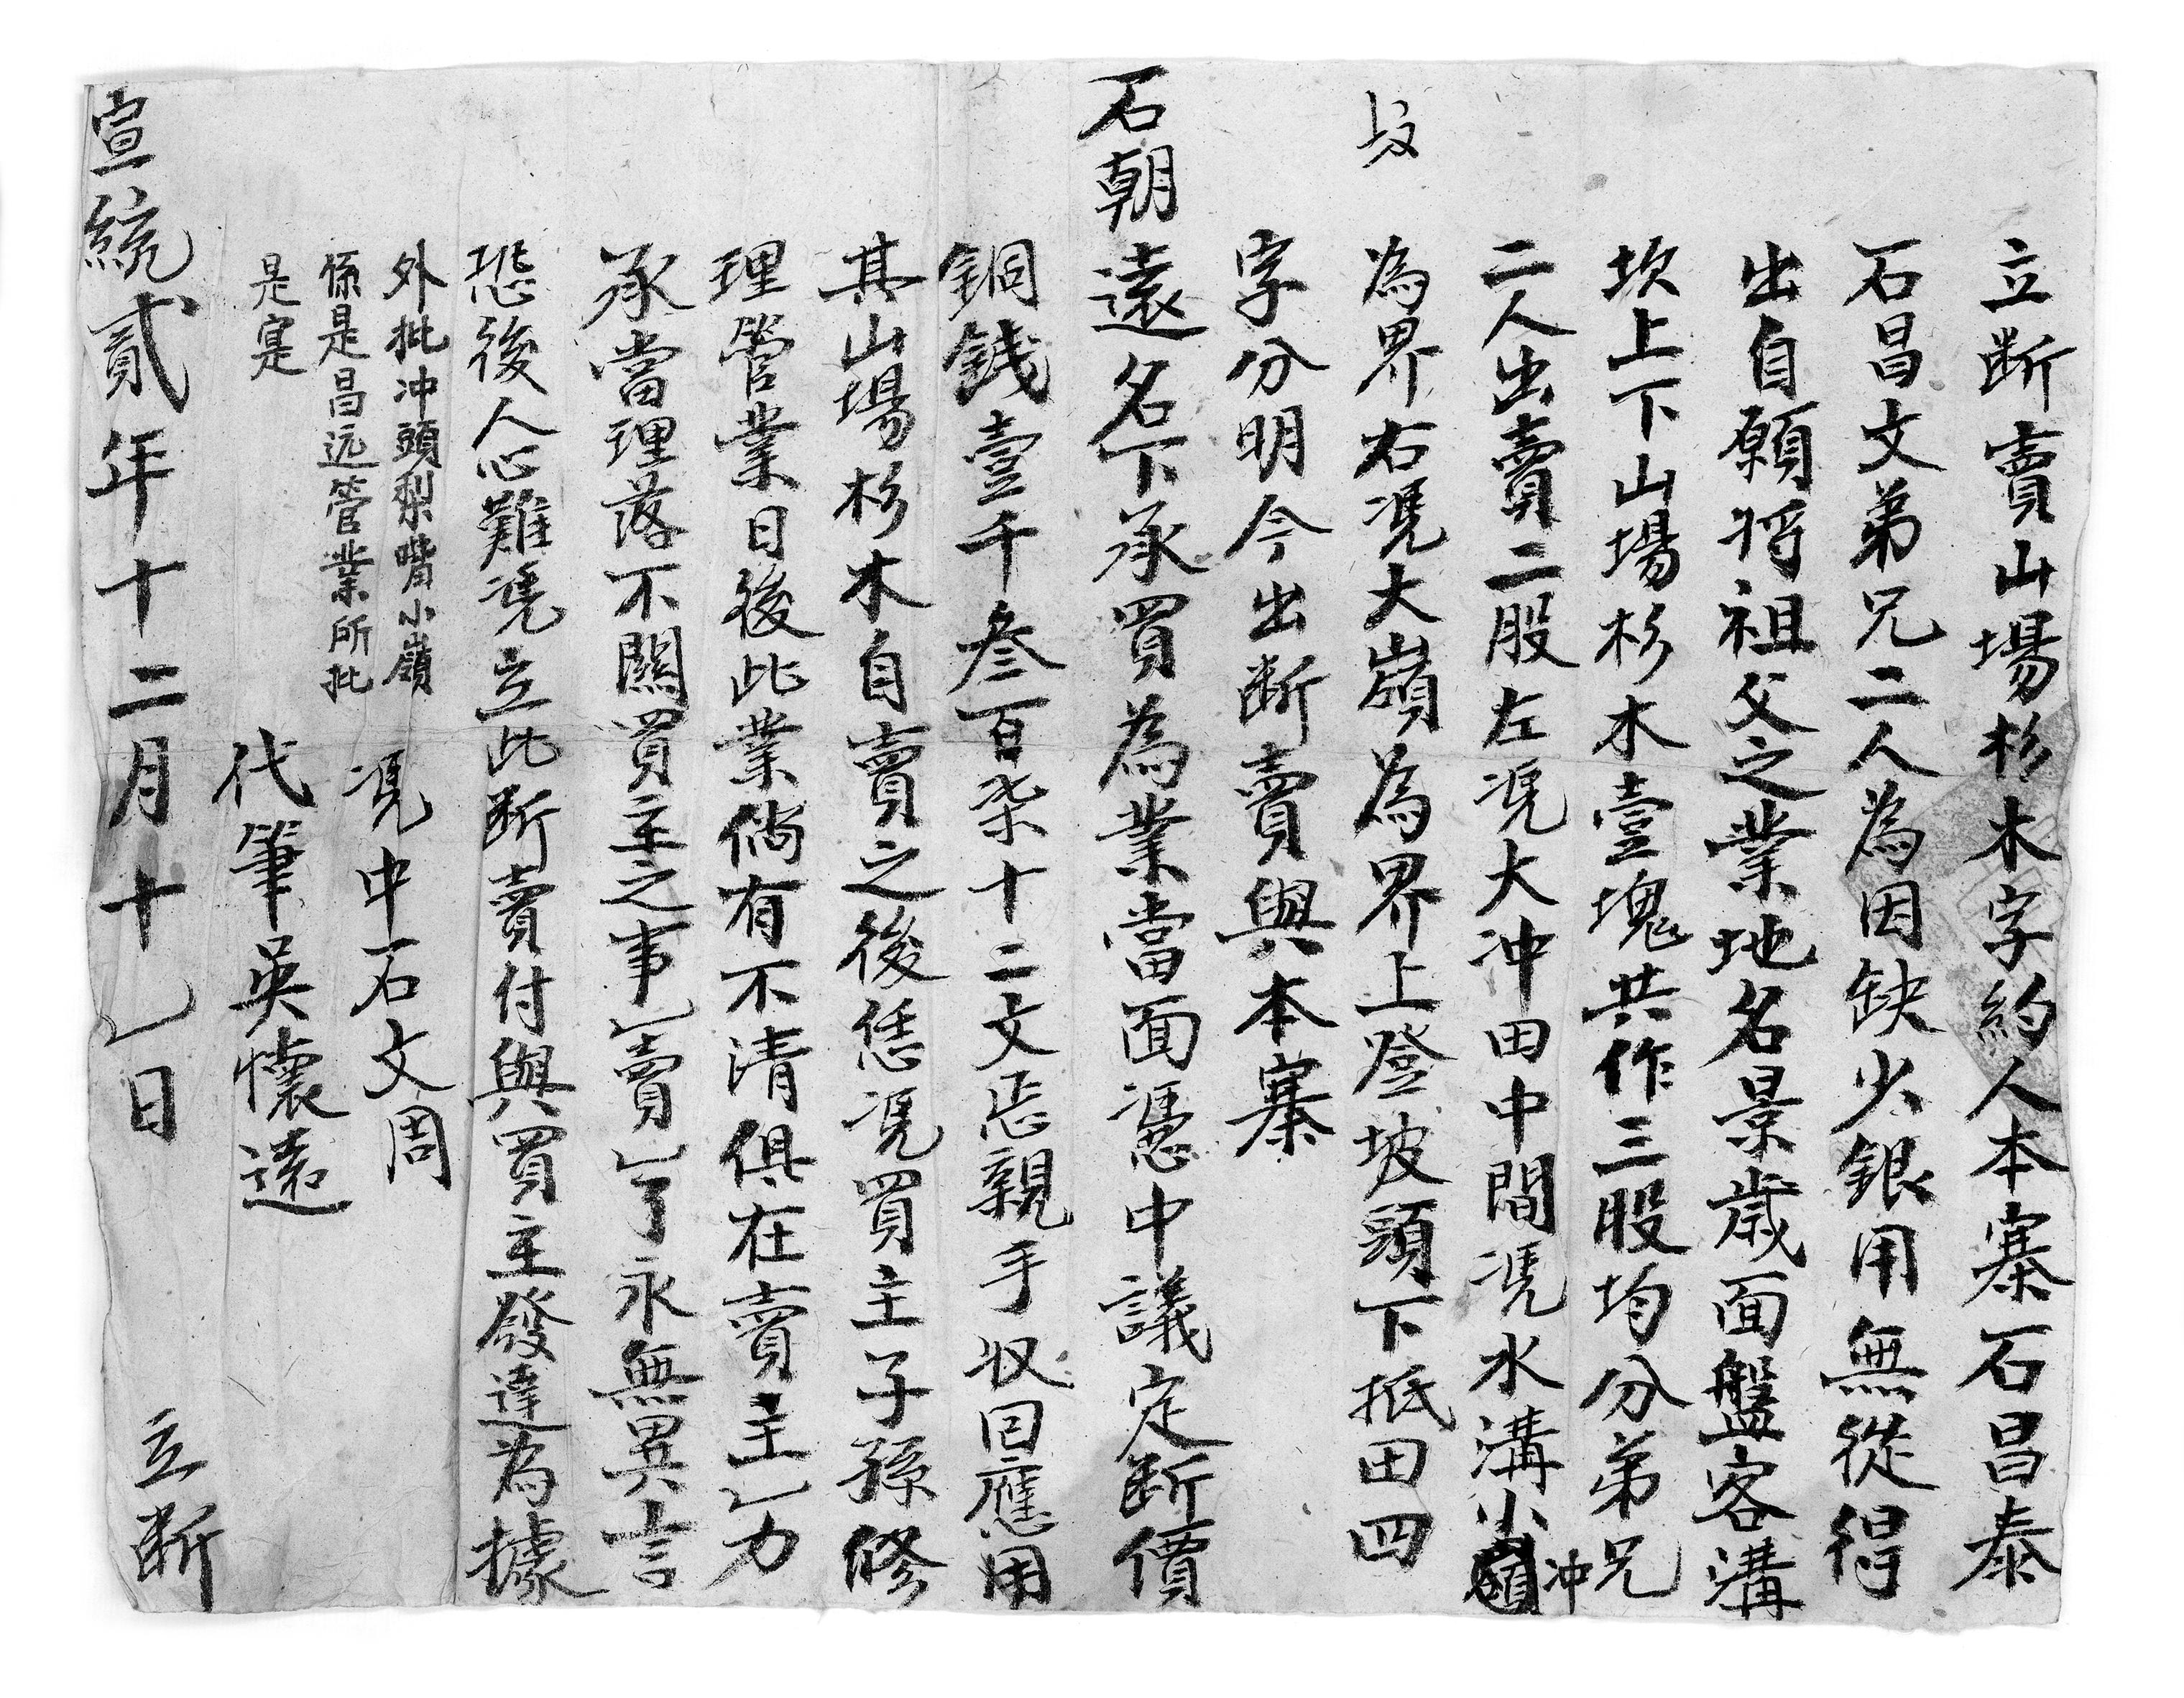 立断賣山場杉木字約人本寨石昌泰
石昌文弟兄二人為因缺少銀用無從得
出自願将祖父之業地名景歲面盤客溝
坎上下山場杉木壹塊共作三股均分弟兄
二人出賣二股左凴大冲田中間凴水溝小冲
為界右凴大嶺為界上登坡頭下抵田四
坟
字分明今出断賣與本寨
石朝遠名下承買為業當面憑中議定断價
銅銭壹千叁百柒十二文㤙親手収回應用
其山塲杉木自賣之後恁凴買主子孫修
理管業日後此業倘有不清俱在賣主乙力
承當理落不關買主之事乙賣乙了永無異言
恐後人心難凴立此断賣付與買主發達為據
外批冲頭梨嘴小嶺
係是昌远管業所批
是寔
凴中石文周
代筆吳懷遠
宣統貳年十二月十乙日 立断